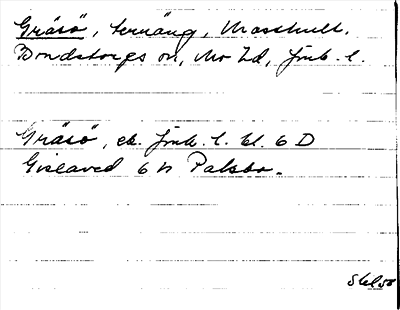 Gräsö, terräng, Marshult,
Bondstorps sn, Mo hd, Jönk. l.
Gräsö, ek. Jönk. l. bl. 6 D
Gislaved 6 h Palsbo.